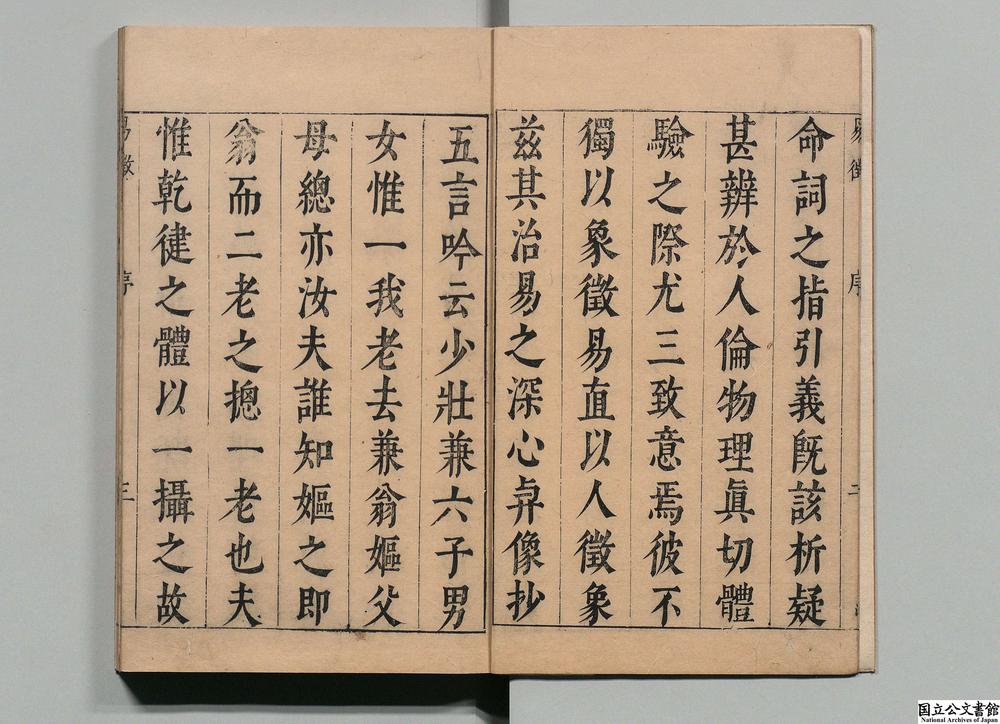 命詞之指引義既該析疑
甚辨於人倫物理眞切體
驗之際尤三致意焉彼不
獨以象徵易直以人徵象
茲其治易之深心與像抄
五言吟云少壯兼六子男
女惟一我老去兼翁嫗父
母總亦汝夫誰知嫗之即
翁而二老之摠一老也夫
惟乾徤之體以一攝之故
序
三
国立公文書館
National Archives of Japan